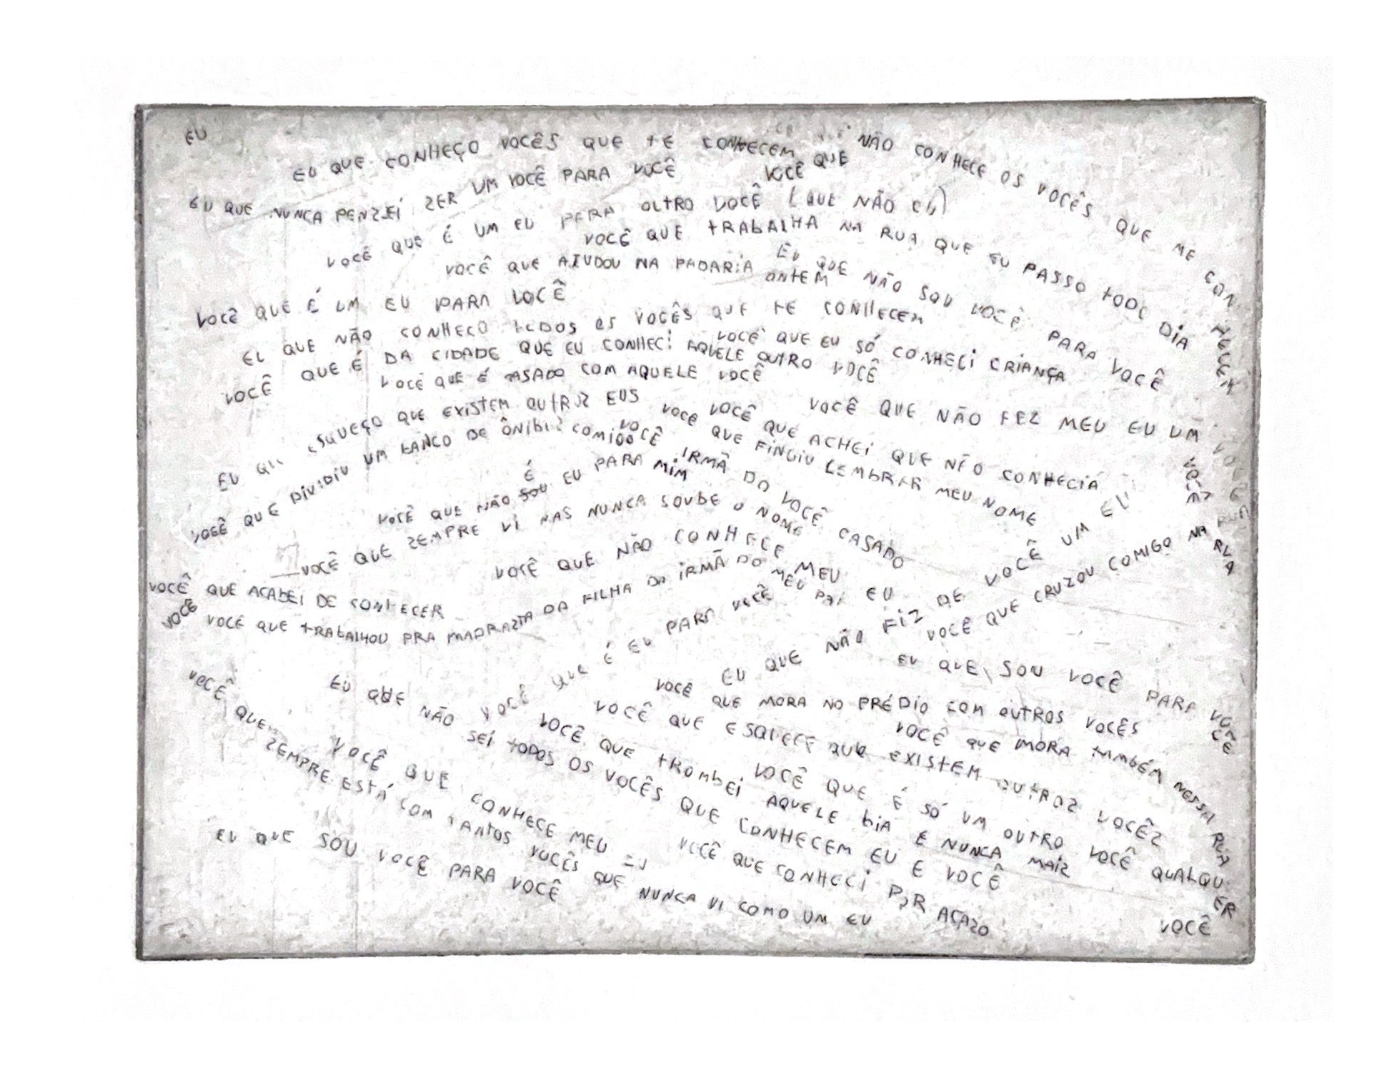 EU
EU QUE CONHEÇO VOCÊS QUE TE CONHECEM
VOCÊ QUE NÃO CONHECE OS VOCÊS QUE ME CONHECEM
EU QUE NUNCA PENZEI ZER UM VOCÊ PARA VOCÊ
VOCÊ QUE É UM EU PARA OUTRO VOCÊ (QUE NÃO EU)
VOCÊ QUE TRABALHA NA RUA QUE EU PASSO TODO DIA
VOCÊ QUE AJUDOU NA PADARIA ONTEM
EU QUE NÃO SOU VOCÊ PARA VOCÊ
VOCÊ QUE É UM EU PARA VOCÊ
EU QUE NÃO CONHEÇO TODOS OS VOCÊS QUE TE CONHECEM
VOCÊ QUE EU SÓ CONHECI CRIANÇA
VOCÊ QUE É DA CIDADE QUE EU CONHECI AQUELE OUTRO VOCÊ
VOCÊ QUE É CASADO COM AQUELE VOCÊ
VOCÊ QUE NÃO FEZ MEU EU UM VOCÊ
EU QUE ESQUEÇO QUE EXISTEM OUTROZ EUS
VOCÊ VOCÊ QUE ACHEI QUE NÃO CONHECIA
VOCÊ QUE DIVIDIU UM BANCO DE ÔNIBUS COMIGO
VOCÊ QUE FINGIU LEMBRAR MEU NOME
VOCÊ IRMÃ DO VOCÊ CASADO
VOCÊ QUE NÃO É SOU EU PARA MIM
VOCÊ QUE ZEMPRE VI MAS NUNCA SOUBE O NOME
VOCÊ QUE NÃO CONHECE MEU EU
EU QUE NÃO FIZ DE VOCÊ UM EU
VOCÊ QUE CRUZOU COMIGO NA RUA
VOCÊ
VOCÊ QUE ACABEI DE CONHECER
VOCÊ
VOCÊ QUE TRABALHOU PRA MADRAZTA DA FILHA DA IRMÃ DO MEU PAI
VOCÊ QUE É EU PARA VOCÊ
EU QUE SOU VOCÊ PARA VOCÊ
VOCÊ QUE MORA NO PRÉDIO COM OUTROS VOCÊS
VOCÊ QUE MORA TAMBÉM NESSA RUA
EU QUE NÃO SEI TODOS OS VOCÊS QUE CONHECEM EU E VOCÊ
VOCÊ QUE ESQUECE QUE EXISTEM OUTROZ VOCÊZ
VOCÊ QUE TROMBEI AQUELE DIA E NUNCA MAIZ
VOCÊ QUE É SÓ UM OUTRO VOCÊ QUALQUER
VOCÊ QUE ZEMPRE ESTÁ COM TANTOS VOCÊS QUE NUNCA VI COMO UM EU
VOCÊ QUE CONHECE MEU EU
VOCÊ QUE CONHECI POR ACAZO
EU QUE SOU VOCÊ PARA VOCÊ
VOCÊ